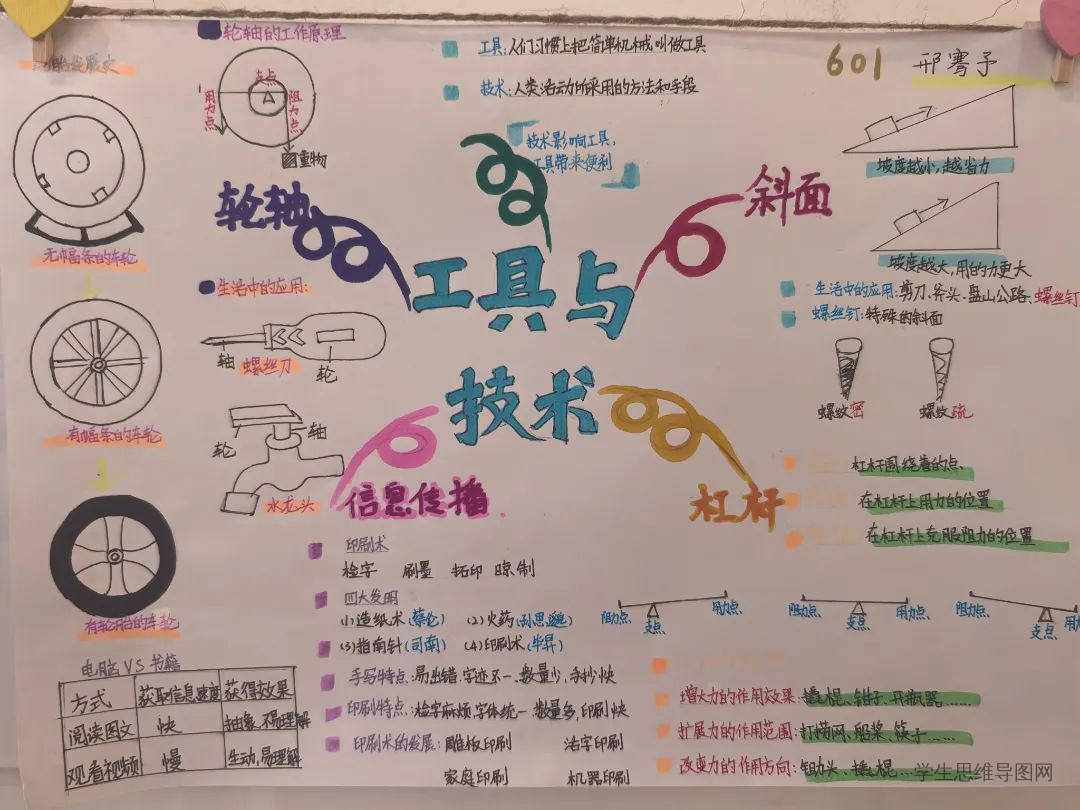 601 邢骞予
工具与
技术
工具:人们习惯上把简单机械叫做工具
技术:人类活动所采用的方法和手段
技术影响工具,
工具带来便利
轮轴
轮轴的工作原理
支点
用力点
阻力点
重物
生活中的应用:
轴
螺丝刀
轮
轮
轴
水龙头
无幅条的车轮
有幅条的车轮
有轮胎的车轮
斜面
坡度越小,越省力
坡度越大,用的力更大
生活中的应用:剪刀、斧头、盘山公路、螺丝钉
螺丝钉:特殊的斜面
螺纹密
螺纹疏
杠杆
杠杆围绕着的点、
在杠杆上用力的位置
在杠杆上克服阻力的位置
阻力点 支点 用力点
阻力点 支点 用力点
阻力点 支点 用
增大力的作用效果:撬棍、钳子、开瓶器……
扩展力的作用范围:打捞网、船桨、筷子……
改变力的作用方向:锄头、撬棍…
信息传播
印刷术
检字 刷墨 拓印 晾制
四大发明
(1)造纸术(蔡伦) (2)火药(孙思邈)
(3)指南针(司南) (4)印刷术(毕昇)
手写特点:易出错,字迹不一、数量少,手抄快
印刷特点:检字麻烦,字体统一 数量多,印刷快
印刷术的发展:雕板印刷 活字印刷
家庭印刷 机器印刷
电脑VS书籍
方式 获取信息速度 获得效果
阅读图文 快 抽象、不易理解
观看视频 慢 生动,易理解
学生思维导图网